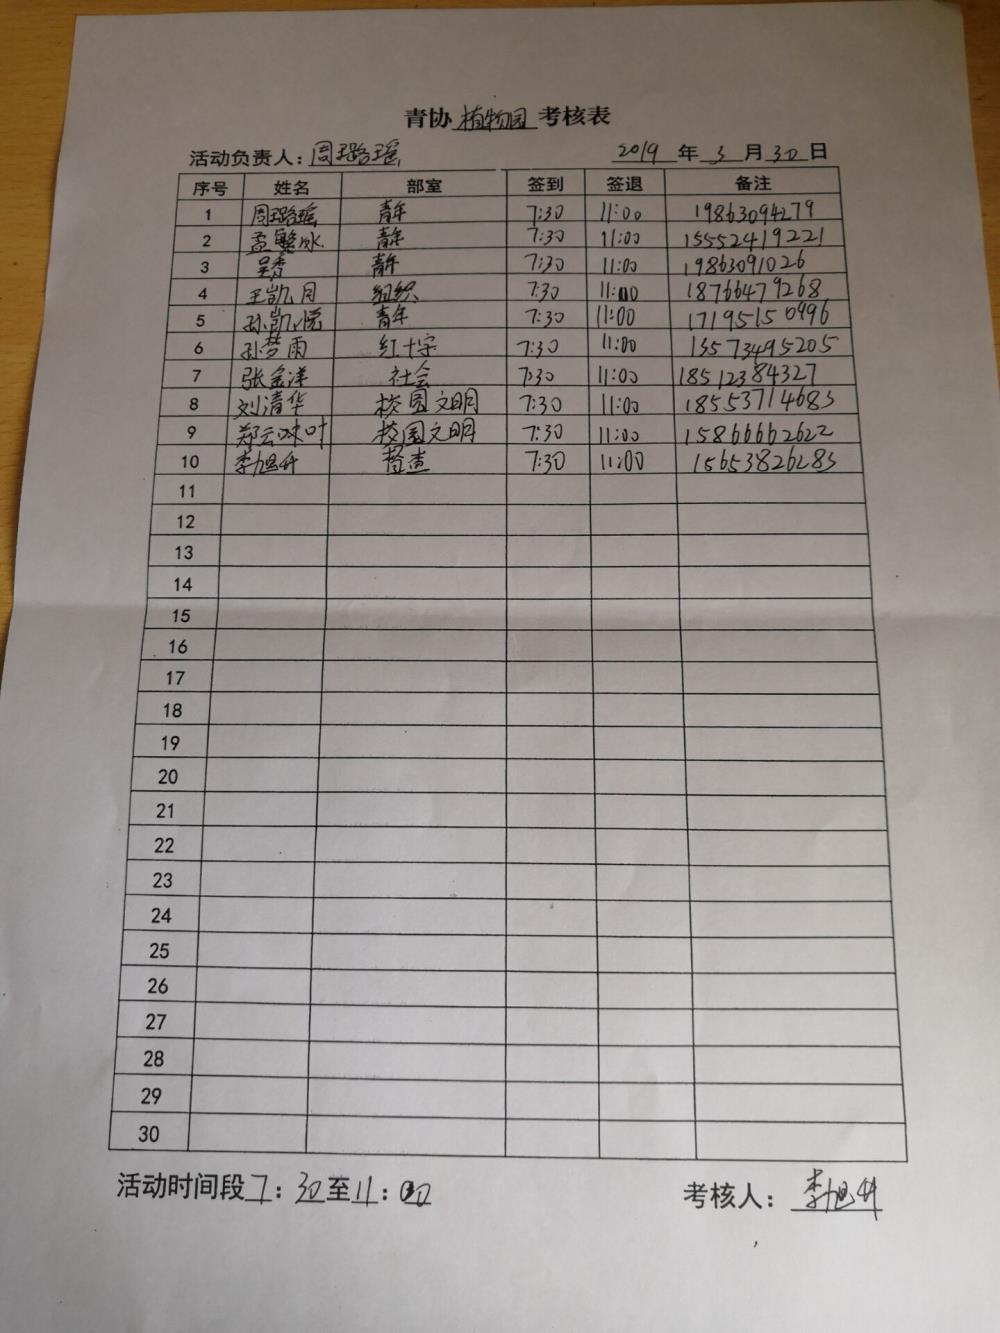 青协 植物园 考核表
活动负责人：周璐瑶 2019 年 3 月 30 日
序号 姓名 部室 签到 签退 备注
1 周璐瑶 青年 7:30 11:00 19863094279
2 孟繁冰 青年 7:30 11:00 15552419221
3 吴秀 青年 7:30 11:00 19863091026
4 王凯月 组织 7:30 11:00 18766479268
5 孙凯悦 青年 7:30 11:00 17195150496
6 孙梦雨 红十字 7:30 11:00 13573495205
7 张金洋 社会 7:30 11:00 18512384327
8 刘清华 校园文明 7:30 11:00 18553714683
9 郑云味叶 校园文明 7:30 11:00 15866662622
10 李旭升 督查 7:30 11:00 15653826283
11
12
13
14
15
16
17
18
19
20
21
22
23
24
25
26
27
28
29
30
活动时间段 7：30 至 11：00 考核人：李旭升